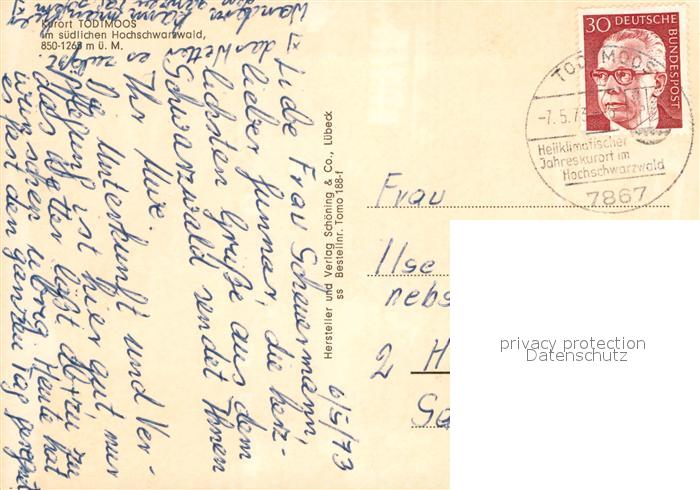 Kurort TODTMOOS
im südlichen Hochschwarzwald,
850-1263 m ü. M.
6/5/73
Liebe Frau Scheuermann,
lieber Gunnar, die herz-
lichsten Grüße aus dem
Schwarzwald sendet Ihnen
Ihr Uwe.
Unterkunft und Ver-
pflegung ist hier gut nur
das Wetter läßt ab + zu zu
wünschen übrig. Heute hat
es fast den ganzen Tag geregnet
das Wetter
Hersteller und Verlag Schöning & Co., Lübeck
ss Bestellnr. Tomo 188-f
30 DEUTSCHE
BUNDESPOST
TODTMOOS
-7.5.73
Heilklimatischer
Jahreskurort im
Hochschwarzwald
7867
Frau
Ilse
nebs
2 H
privacy protection
Datenschutz